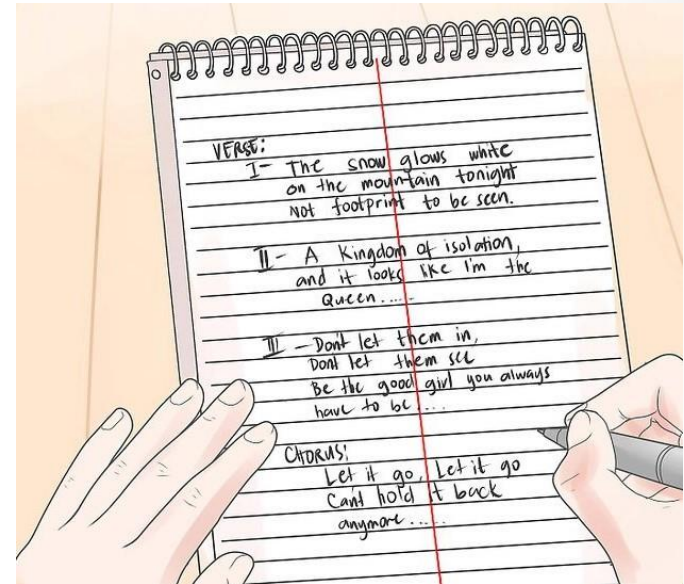 VERSE:
I- The snow glows white
on the mountain tonight
Not footprint to be seen.
II- A Kingdom of isolation,
and it looks like I'm the
Queen.....
III-Don't let them in,
Dont let them see
Be the good girl you always
have to be....
CHORUS:
Let it go, Let it go
Cant hold it back
anymore.....